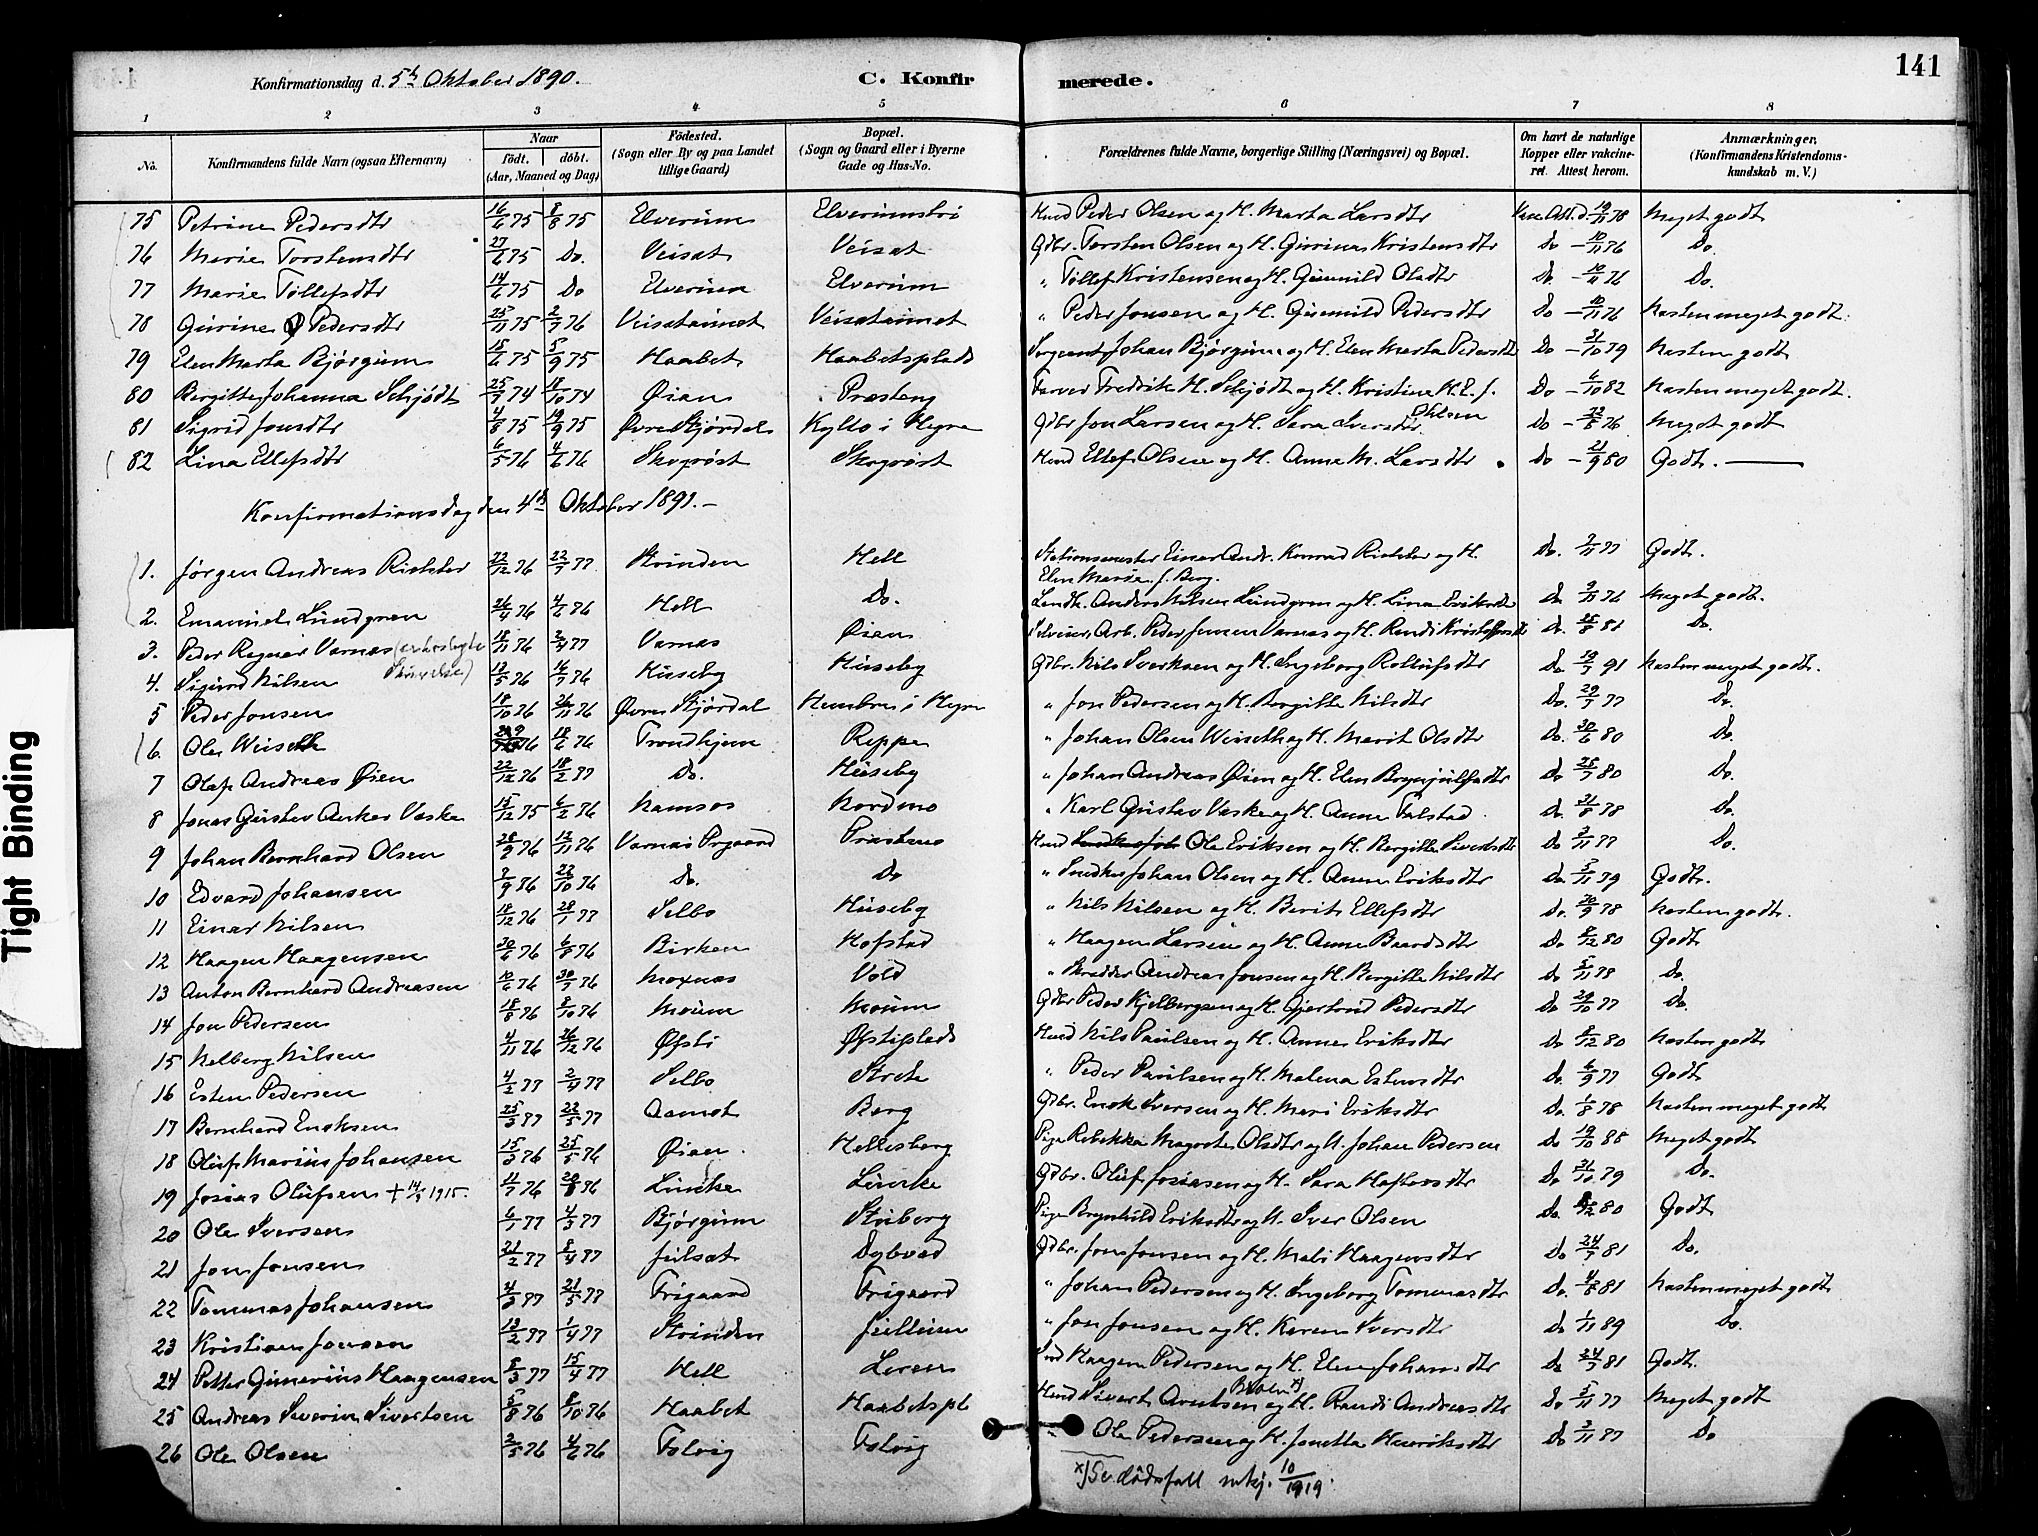 Konfirmationsdag d. 5te Oktober 1890. C. Konfirmerede. 141
1 2 3 4 5 6 7 8
No. Konfirmandens fulde Navn (ogsaa Efternavn) Naar født. døbt. (Aar, Maaned og Dag) Födested. (Sogn eller By og paa Landet tillige Gaard) Bopæl. (Sogn og Gaard eller i Byerne Gade og Hus-No. Forældrenes fulde Navne, borgerlige Stilling (Næringsvei) og Bopæl. Om havt de naturlige Kopper eller vakcineret. Attest herom. Anmærkninger. (Konfirmandens Kristendomskundskab m. V.)
75 Petrine Pedersdtr 16/6 75 8/8 75 Elverum Elverumströ Hmd Peder Olsen og H. Marta Larsdtr Vac. Att. d. 19/11 78 Meget godt
76 Marie Torstensdtr 27/6 75 Do. Veisat Veisat Gdbr. Torsten Olsen og H. Gurina Kristensdtr Do – 10/11 76 Do.
77 Marie Tollefsdtr 14/6 75 Do Elverum Elverum " Tollef Kristensen og H. Gunnild Olsdtr Do. – 10/11 76 Do.
78 Gurine O Pedersdtr 25/11 75 2/7 76 Veisataunet Veisataunet " Peder Jonsen og H. Gunnild Pedersdtr Do – 10/11 76 Næsten meget godt.
79 Elen Marta Bjørgum 15/6 75 5/9 75 Haabet Haabetsplads Sergeant Johan Bjørgum og H. Elen Marta Pedersdtr Do – 31/10 79 Næsten godt
80 Bergitte Johanna Schjödt 25/7 74 18/10 74 Øian Præsteng Farver Fredrik H. Schjödt og H. Kristina M. E. f. Ohlsen Do – 6/10 82 Næsten meget godt.
81 Sigrid Jonsdtr 4/8 75 19/9 75 Øvre Stjørdal Kyllo i Hegra Gdbr Jon Larsen og H. Sara Iversdtr Do – 22/8 76 Meget godt
82 Lina Ellefsdtr 6/5 76 4/6 76 Skogrøst Skogrøst Hmd Ellef Olsen og H. Anna M. Larsdtr Do – 21/9 80 Godt.
Konfirmationsdag den 4de Oktober 1891.
1. Jørgen Andreas Richter 22/12 76 22/7 77 Strinden Hell Stationsmester Einar Andr. Konrad Richter og H. Elen Marie f. Berg. Do. 7/11 77 Godt.
2. Emanuel Lundgren 26/4 76 4/6 76 Hell Do. Landh. Anders Nilsen Lundgren og H. Lina Eriksdtr Do. 9/11 76 Meget godt.
3. Peder Regnar Værnes 18/11 76 2/4 77 Værnes Øien Arb. Peder Jonsen Værnes og H. Randi Kristoffersdtr Do. 25/8 81 Do.
4. Sigurd Nilsen 13/5 76 16/7 76 Huseby Husby Gdbr. Nils Sverksen og H. Ingeborg Rollufsdtr Do. 19/7 91 Næsten meget godt.
5 Peder Jonsen 18/10 76 26/11 76 Øvre Stjørdal Hembre i Hegra " Jon Pedersen og H. Bergitte Nilsdtr Do. 29/7 77 Do.
6. Ole Wiseth 76 18/6 76 Trondhjem Reppe " Johan Olsen Wiseth og H. Marit Olsdtr Do. 30/6 80 Do.
7 Olaf Andreas Øien 22/12 76 18/2 77 Do. Huseby " Johan Andreas Øien og H. Elen Brynjulfsdtr Do 25/7 80 Do.
8 Jonas Gustav Anker Væske 15/12 75 6/2 76 Namsos Nordmo " Karl Gustav Væske og H. Anne Falstad Do. 31/8 78 Do.
9 Johan Bernhard Olsen 28/9 76 12/11 76 Værnes Prgaard Præstemo Hmd Ole Eriksen og H. Bergitte Sivertsdtr Do 3/11 77 Do.
10 Edvard Johansen 7/9 76 22/10 76 Do. Do " Snedker Johan Olsen og H. Anna Eriksdtr Do. 5/11 79 Godt.
11 Einar Nilsen 18/12 76 28/1 77 Selbo Huseby " Nils Nilsen og H. Berit Ellefsdtr Do. 20/9 78 Næsten godt.
12 Haagen Haagensen 30/6 76 6/8 76 Birken Hofstad " Haagen Larsen og H. Anne Baardsdtr Do. 8/12 80 Godt
13 Anton Bernhard Andreasen 10/6 76 30/7 76 Moxnes Vold " Skrædder Andreas Jonsen og H. Bergitte Nilsdtr Do 5/11 78 Do.
14 Jon Pedersen 18/8 76 8/10 76 Moum Moum Gdbr Peder Kjelbergsen og H. Gjertrud Pedersdtr Do 29/10 77 Do.
15 Kelberg Nilsen 4/11 76 26/12 76 Øfsti Øfstiplads Hmd Nils Paulsen og H. Anne Eriksdtr Do 8/12 80 Næsten godt
16 Esten Pedersen 4/2 77 2/4 77 Selbo Strete " Peder Paulsen og H. Malena Estensdtr Do. 6/9 77 Godt
17 Bernhard Enoksen 25/3 77 22/5 77 Aamot Berg Gdbr. Enok Iversen og H. Mari Eriksdtr Do. 1/8 78 Næsten meget godt
18 Oluf Marius Johansen 15/3 76 25/5 76 Øian. Hellesberg Pige Rebekka Magrete Olsdtr og U. Johan Pedersen Do 19/10 88 Meget godt
19 Josias Olufsen + 14/5 1915. 11/7 76 20/8 76 Luncke Luncke Gdbr. Oluf Josiasen og H. Sara Haftorsdtr Do 31/10 79 Do.
20 Ole Iversen 6/1 77 4/3 77 Bjørgum Stuberg Pige Brynhild Eriksdtr og U. Iver Olsen Do. 8/12 80 Godt
21 Jon Jonsen 21/2 77 8/4 77 Julsat Dybvad Gdbr. Jon Jonsen og H. Mali Haagensdtr Do 24/7 81 Do.
22 Tommas Johansen 4/3 77 21/5 77 Frigaard Frigaard " Johan Pedersen og H. Ingeborg Tommasdtr Do. 4/8 81 Næsten meget godt
23 Kristian Jonsen 13/2 77 1/4 77 Strinden Julluum " Jon Jonsen og H. Karen Iversdtr Do. 1/11 89 Do.
24 Petter Gunerius Haagensen 8/3 77 15/4 77 Hell Leren Haagen Pedersen og H. Elen Johansdtr Do 24/7 81 Godt.
25 Andreas Severin Sivertsen 5/8 76 8/10 76 Haabet Haabetspl Hmd Sivert Arntsen x) og H. Randi Andreasdtr Do 5/11 77 Meget godt
26 Ole Olsen 2/5 76 4/6 76 Folvig Folvig Ole Pedersen og H. Jonetta Henriksdtr Do 3/11 87 Do
x) Se dödsfall mkj. 10/1919.
Tight Binding